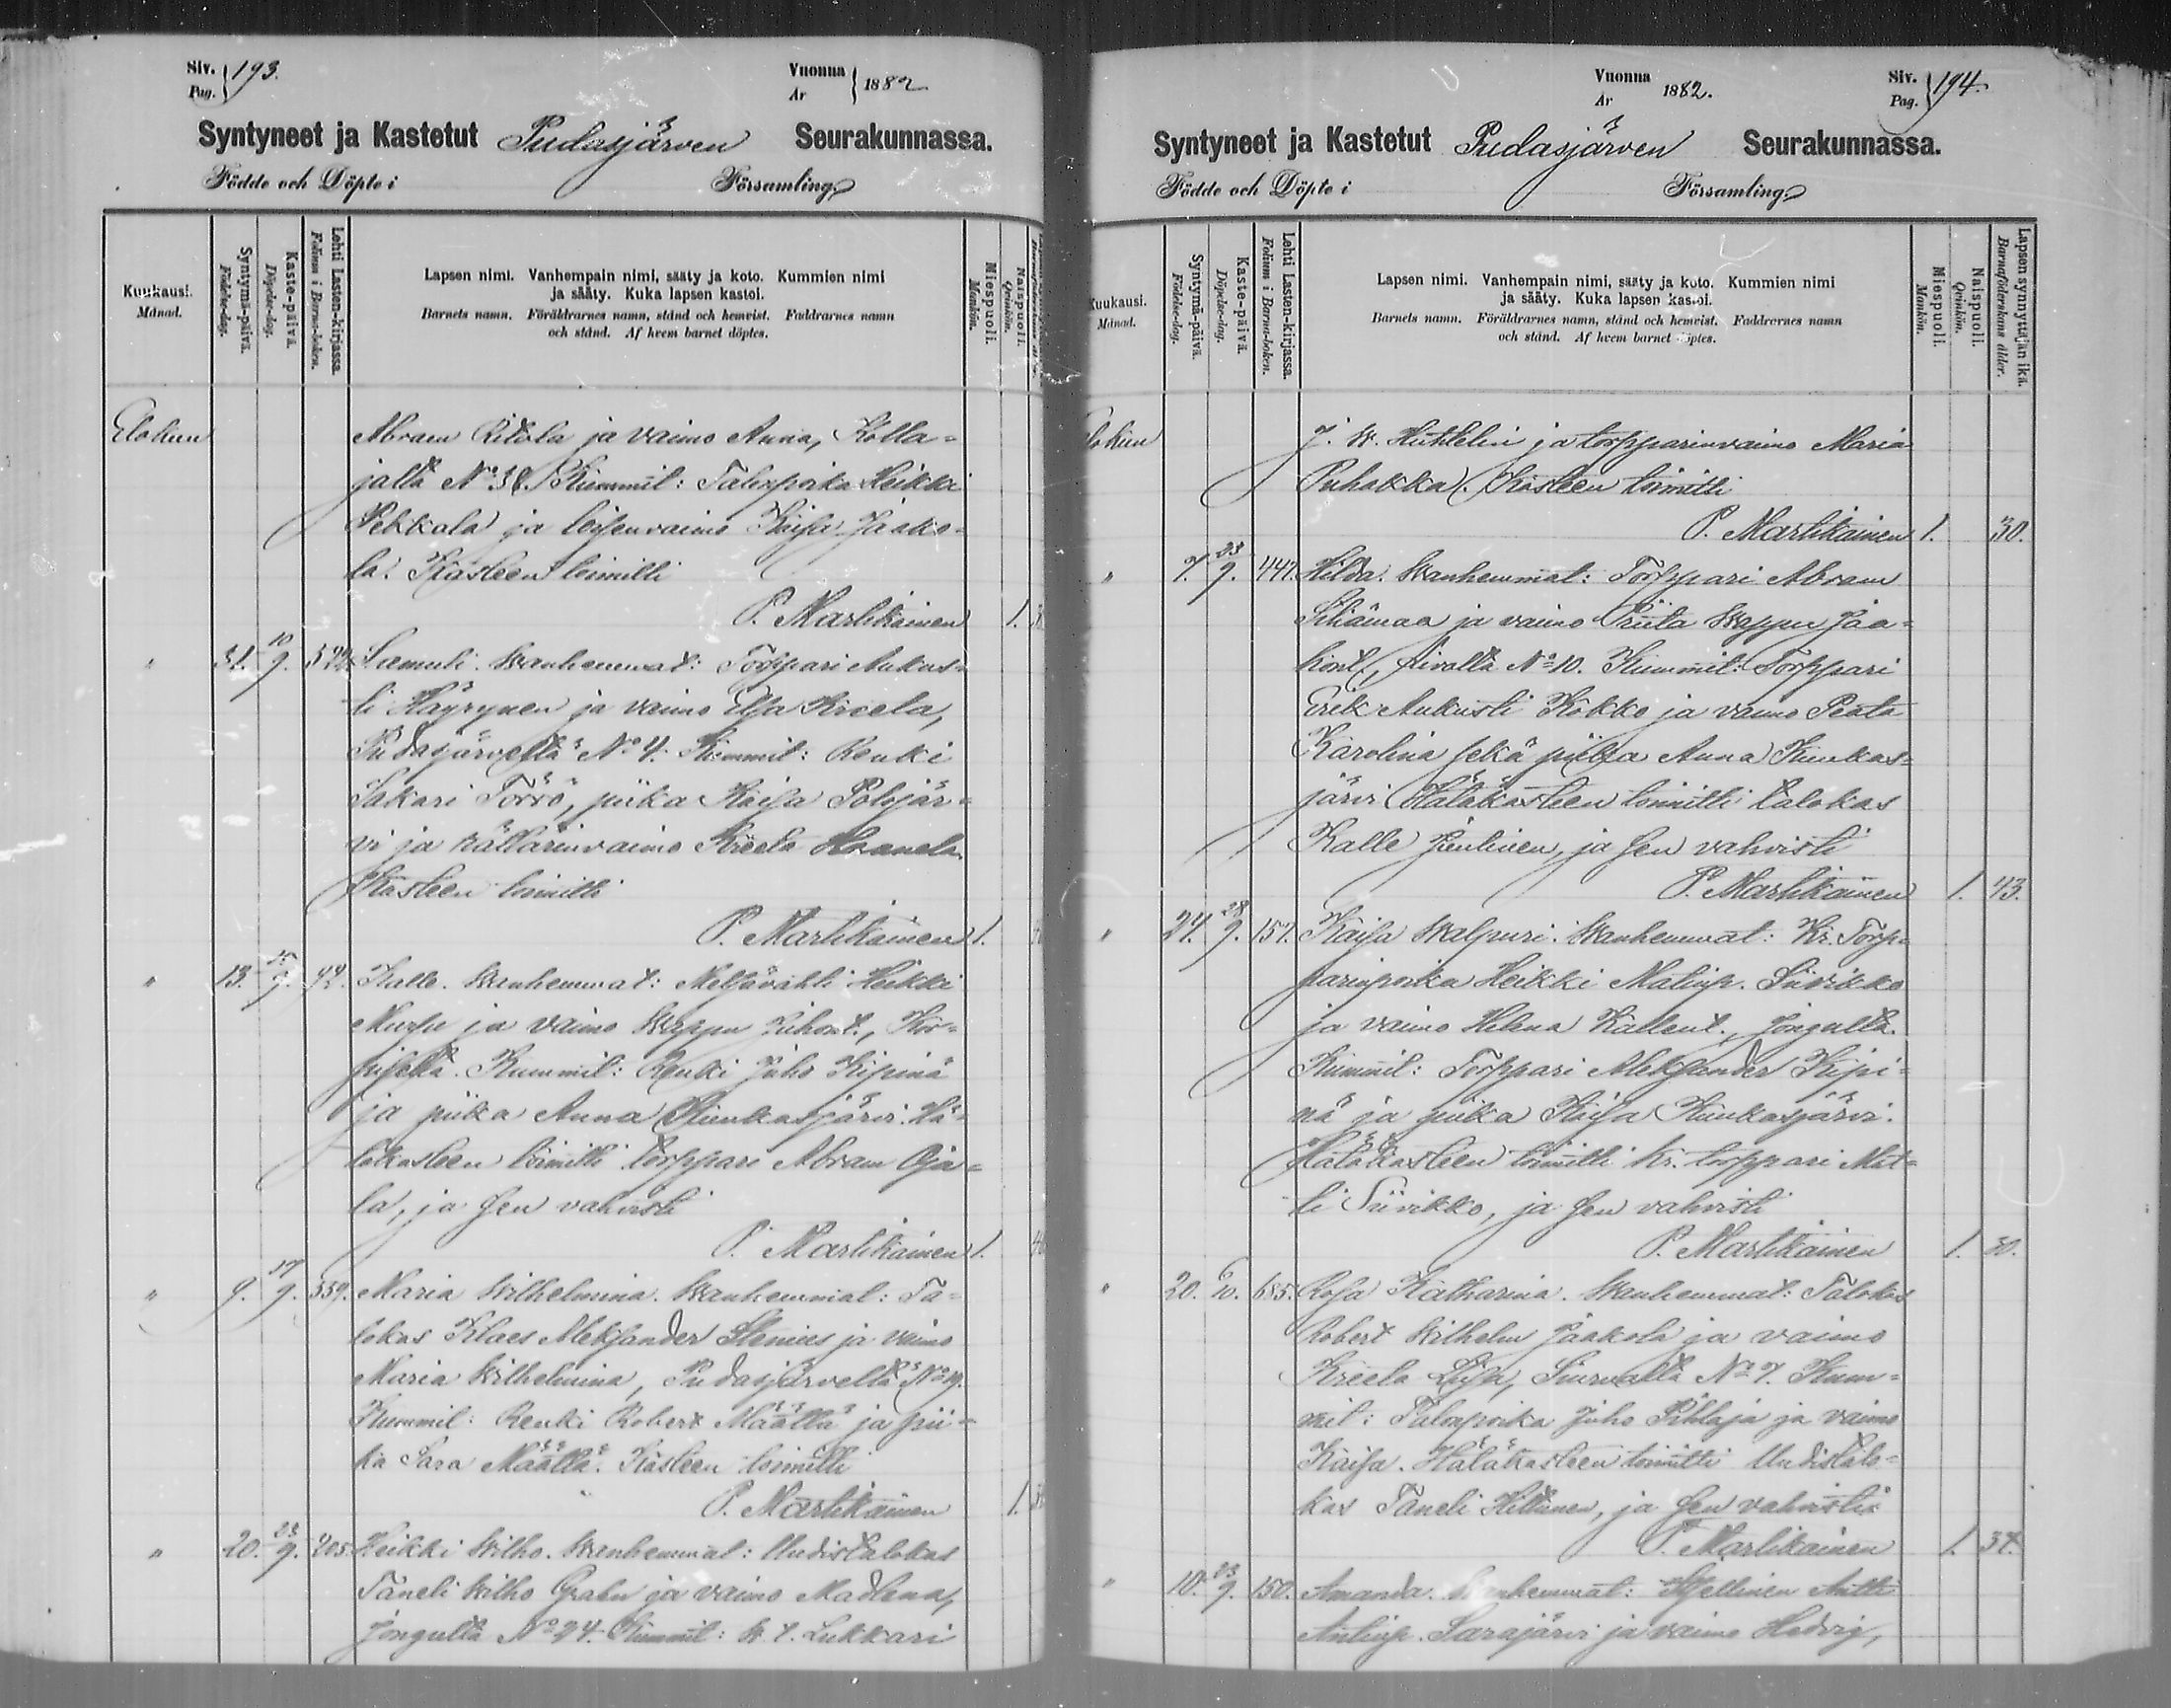 Siv. 193.
Pag.
Vuonna 1882
År
Syntyneet ja Kastetut Pudasjärven Seurakunnassa.
Födde och Döpte i Församling
Kuukausi.
Månad.
Syntymä-päivä.
Födelse-dag.
Kaste-päivä.
Döpelse-dag.
Lehti Lasten-kirjassa.
Folium i Barna-boken.
Lapsen nimi. Vanhempain nimi, sääty ja koto. Kummien nimi
ja sääty. Kuka lapsen kastoi.
Barnets namn. Föräldrarnes namn, stånd och hemvist. Faddrarnes namn
och stånd. Af hvem barnet döptes.
Miespuoli.
Mankön.
Naispuoli.
Qvinkön.
Elokuu Abram Ritola ja vaimo Anna, Kolla=
jalta No 38. Kummit: Talonpoika Heikki
Pekkala ja leskenvaimo Kaisa Jaako=
la. Kasteen toimitti
P. Martikainen 1.
" 31. 10/9. Samuli. Wanhemmat: Torppari Aukus=
ti Häyrynen ja vaimo Elsa Kreeta,
Pudasjärveltä No 4. Kummit: Renki
Sakari Törrö, piika Kaisa Polojär=
vi ja räätärinvaimo Kreeta Haanela.
Kasteen toimitti
P. Martikainen 1.
" 13. 9. 92. Kalle. Wanhemmat: Metsävahti Heikki
ja vaimo Wappu Juhont.,
Kummit: Renki Juho Kipinä
ja piika Anna Kiunkasjärvi. Hä=
täkasteen toimitti torppari Abram Oja=
la, ja sen vahvisti
P. Martikainen 1.
" 9. 17/9. 559. Maria Wilhelmina. Wanhemmat: Ta=
lokas Klaes Aleksander Stenius ja vaimo
Maria Wilhelmina, Pudasjärveltä No 19.
Kummit: Renki Robert Määttä ja pii=
ka Sara Määttä. Kasteen toimitti
P. Martikainen 1.
" 20. 23/9. 205. Heikki Wilho. Wanhemmat: Uudistalokas
Taneli Wilho Grahn ja vaimo Madlena,
Jongulta No 24. Kummit: W. t. Lukkari
Vuonna 1882.
År
Siv. 194.
Pag.
Syntyneet ja Kastetut Pudasjärven Seurakunnassa.
Födde och Döpte i Församling
Kuukausi.
Månad.
Syntymä-päivä.
Födelse-dag.
Kaste-päivä.
Döpelse-dag.
Lehti Lasten-kirjassa.
Folium i Barna-boken.
Lapsen nimi. Vanhempain nimi, sääty ja koto. Kummien nimi
ja sääty. Kuka lapsen kastoi.
Barnets namn. Föräldrarnes namn, stånd och hemvist. Faddrarnes namn
och stånd. Af hvem barnet döptes.
Miespuoli.
Mankön.
Naispuoli.
Qvinkön.
Lapsen synnyttäjän ikä.
Barnaföderskans ålder.
lokuu J. W. Huhtelin ja torpparinvaimo Maria
Puhakka. Kasteen toimitti
P. Martikainen 1. 30.
" 7. 23/9. 447. Hilda. Wanhemmat: Torppari Abram
Sihämaa ja vaimo Priita Wappu Jaa=
kont., Aivolta No 10. Kummit: Torppari
Erik Aukusti Kokko ja vaimo Peata
Karolina sekä piika Anna Kiunkas=
järvi Hätäkasteen toimitti talokas
Kalle Jäntinen, ja sen vahvisti
P. Martikainen 1. 43.
" 24. 28/9. 157. Kaisa Walpuri. Wanhemmat: Kr. Torp=
parinpoika Heikki Matinp. Siivikko
ja vaimo Helena Kallent., Jongulta.
Kummit: Torppari Aleksander Kipi=
nä ja piika Kaisa Kiunkasjärvi.
Hätäkasteen toimitti Kr. torppari Mat=
ti Siivikko, ja sen vahvisti
P. Martikainen 1. 30.
" 20. 6/10. 685. Rosa Katharina. Wanhemmat: Talokas
Robert Wilhelm Jaakola ja vaimo
Kreeta Liisa, Siurualta No 7. Kum=
mit: Talonpoika Juho Pihlaja ja vaimo
Kaisa. Hätäkasteen toimitti Uudistalo=
kas Taneli Hiltunen, ja sen vahvisti
P. Martikainen 1. 34.
" 10. 23/9. 150. Amanda. Wanhemmat: Itsellinen Antti
Antinp. Sarajärvi ja vaimo Hedvig,